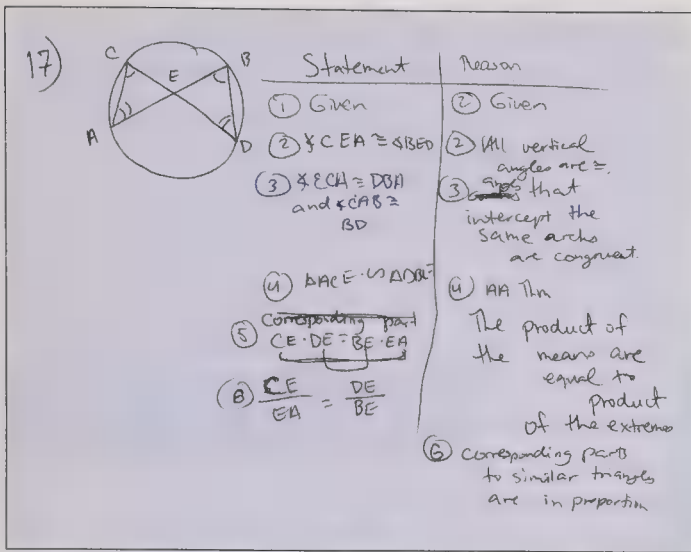 17)
C
B
E
A
D
Statement
Reason
① Given
② Given
② ∢CEA ≅ ∢BED
② All vertical
angles are ≅.
③ ∢ECA ≅ DBA
and ∢CAB ≅
BD
③ angs that
intercept the
same archs
are congruent.
④ ΔACE ∽ ΔDBE
④ AA Thm
Corresponding part
⑤ CE · DE = BE · EA
The product of
the means are
equal to
product
of the extremes
⑧ CE/EA = DE/BE
⑥ corresponding parts
to similar triangles
are in proportion